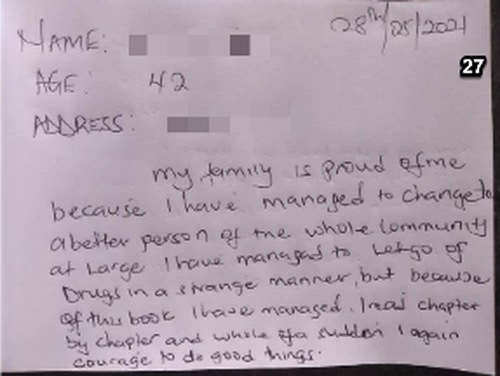 28th/05/2021
NAME:
27
AGE: 42
ADDRESS:
my family is proud of me
because I have managed to change to
a better person of the whole community
at Large I have managed to Let go of
Drugs in a strange manner, but because
of this book I have managed. I read chapter
by chapter and whole of a sudden I again
courage to do good things.